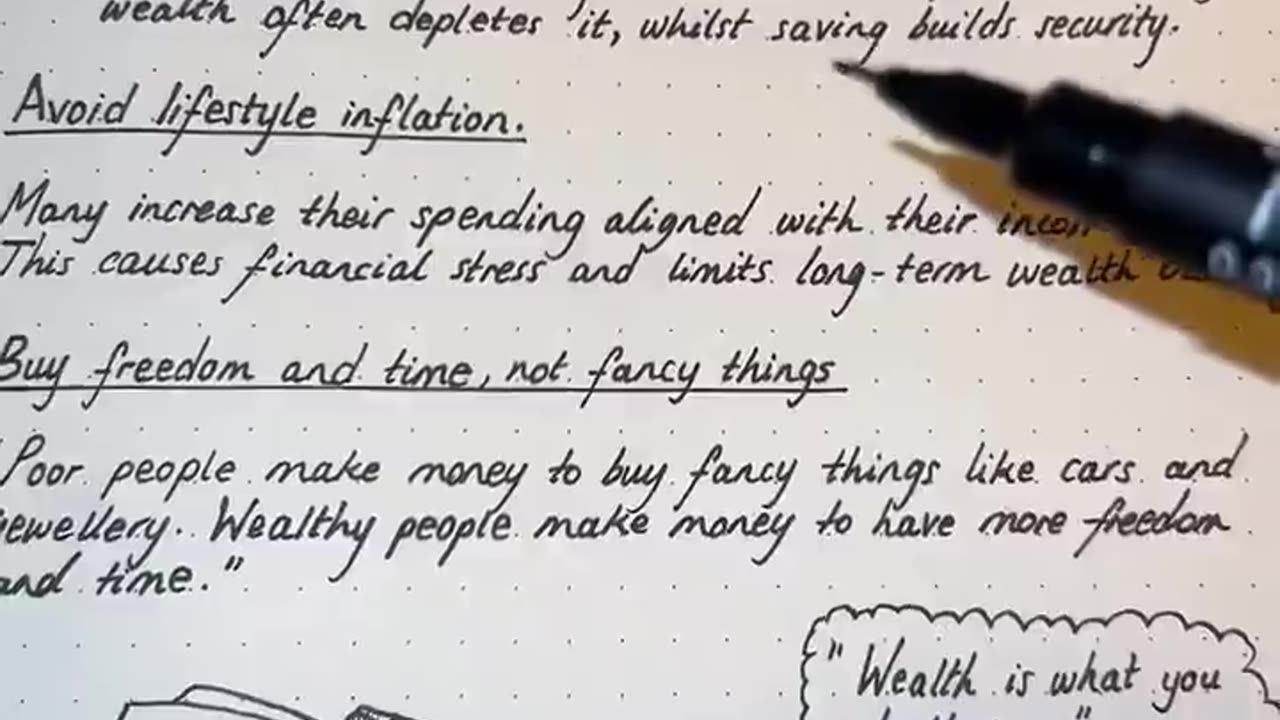 wealth often depletes it, whilst saving builds security.
Avoid lifestyle inflation.
Many increase their spending aligned with their
This causes financial stress and limits long-term wealth
Buy freedom and time, not fancy things
"Poor people make money to buy fancy things like cars and
jewellery. Wealthy people make money to have more freedom
and time."
"Wealth is what you